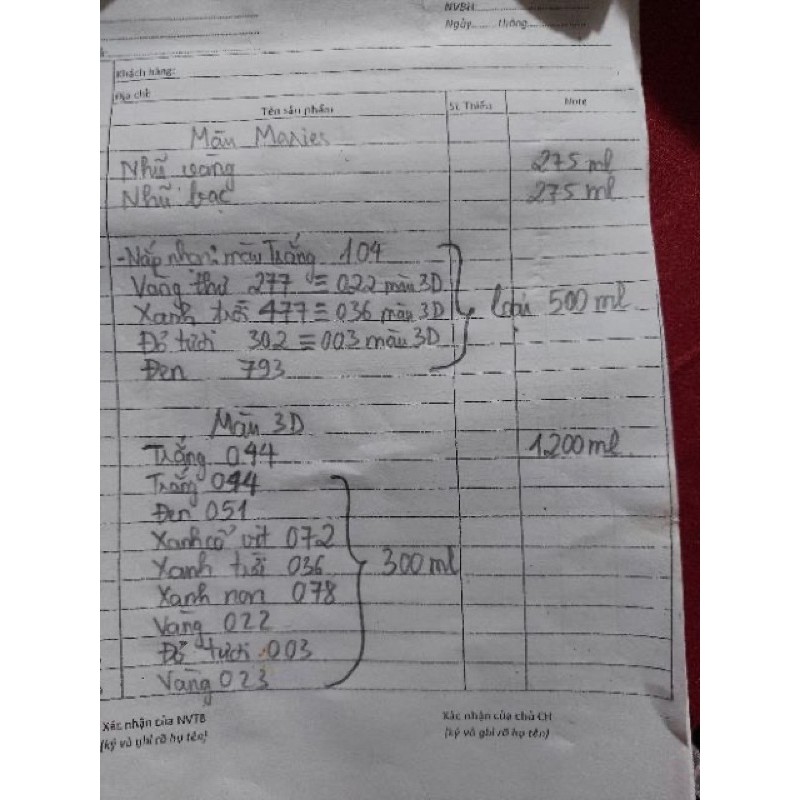 NVBH
Ngày...... tháng......
Khách hàng:
Địa chỉ:
Tên sản phẩm SL Thiếu Note
Màu Maries
Nhũ vàng 275 ml
Nhũ bạc 275 ml
- Nắp nhọn: màu Trắng 104
Vàng thư 277 ≡ 022 màu 3D
Xanh trời 477 ≡ 036 màu 3D
loại 500 ml
Đỏ tươi 302 ≡ 003 màu 3D
Đen 793
Màu 3D
Trắng 044 1200 ml
Trắng 044
Đen 051
Xanh cổ vịt 072
Xanh trời 036
300 ml
Xanh non 078
Vàng 022
Đỏ tươi 003
Vàng 023
Xác nhận của NVTB Xác nhận của chủ CH
(ký và ghi rõ họ tên) (ký và ghi rõ họ tên)